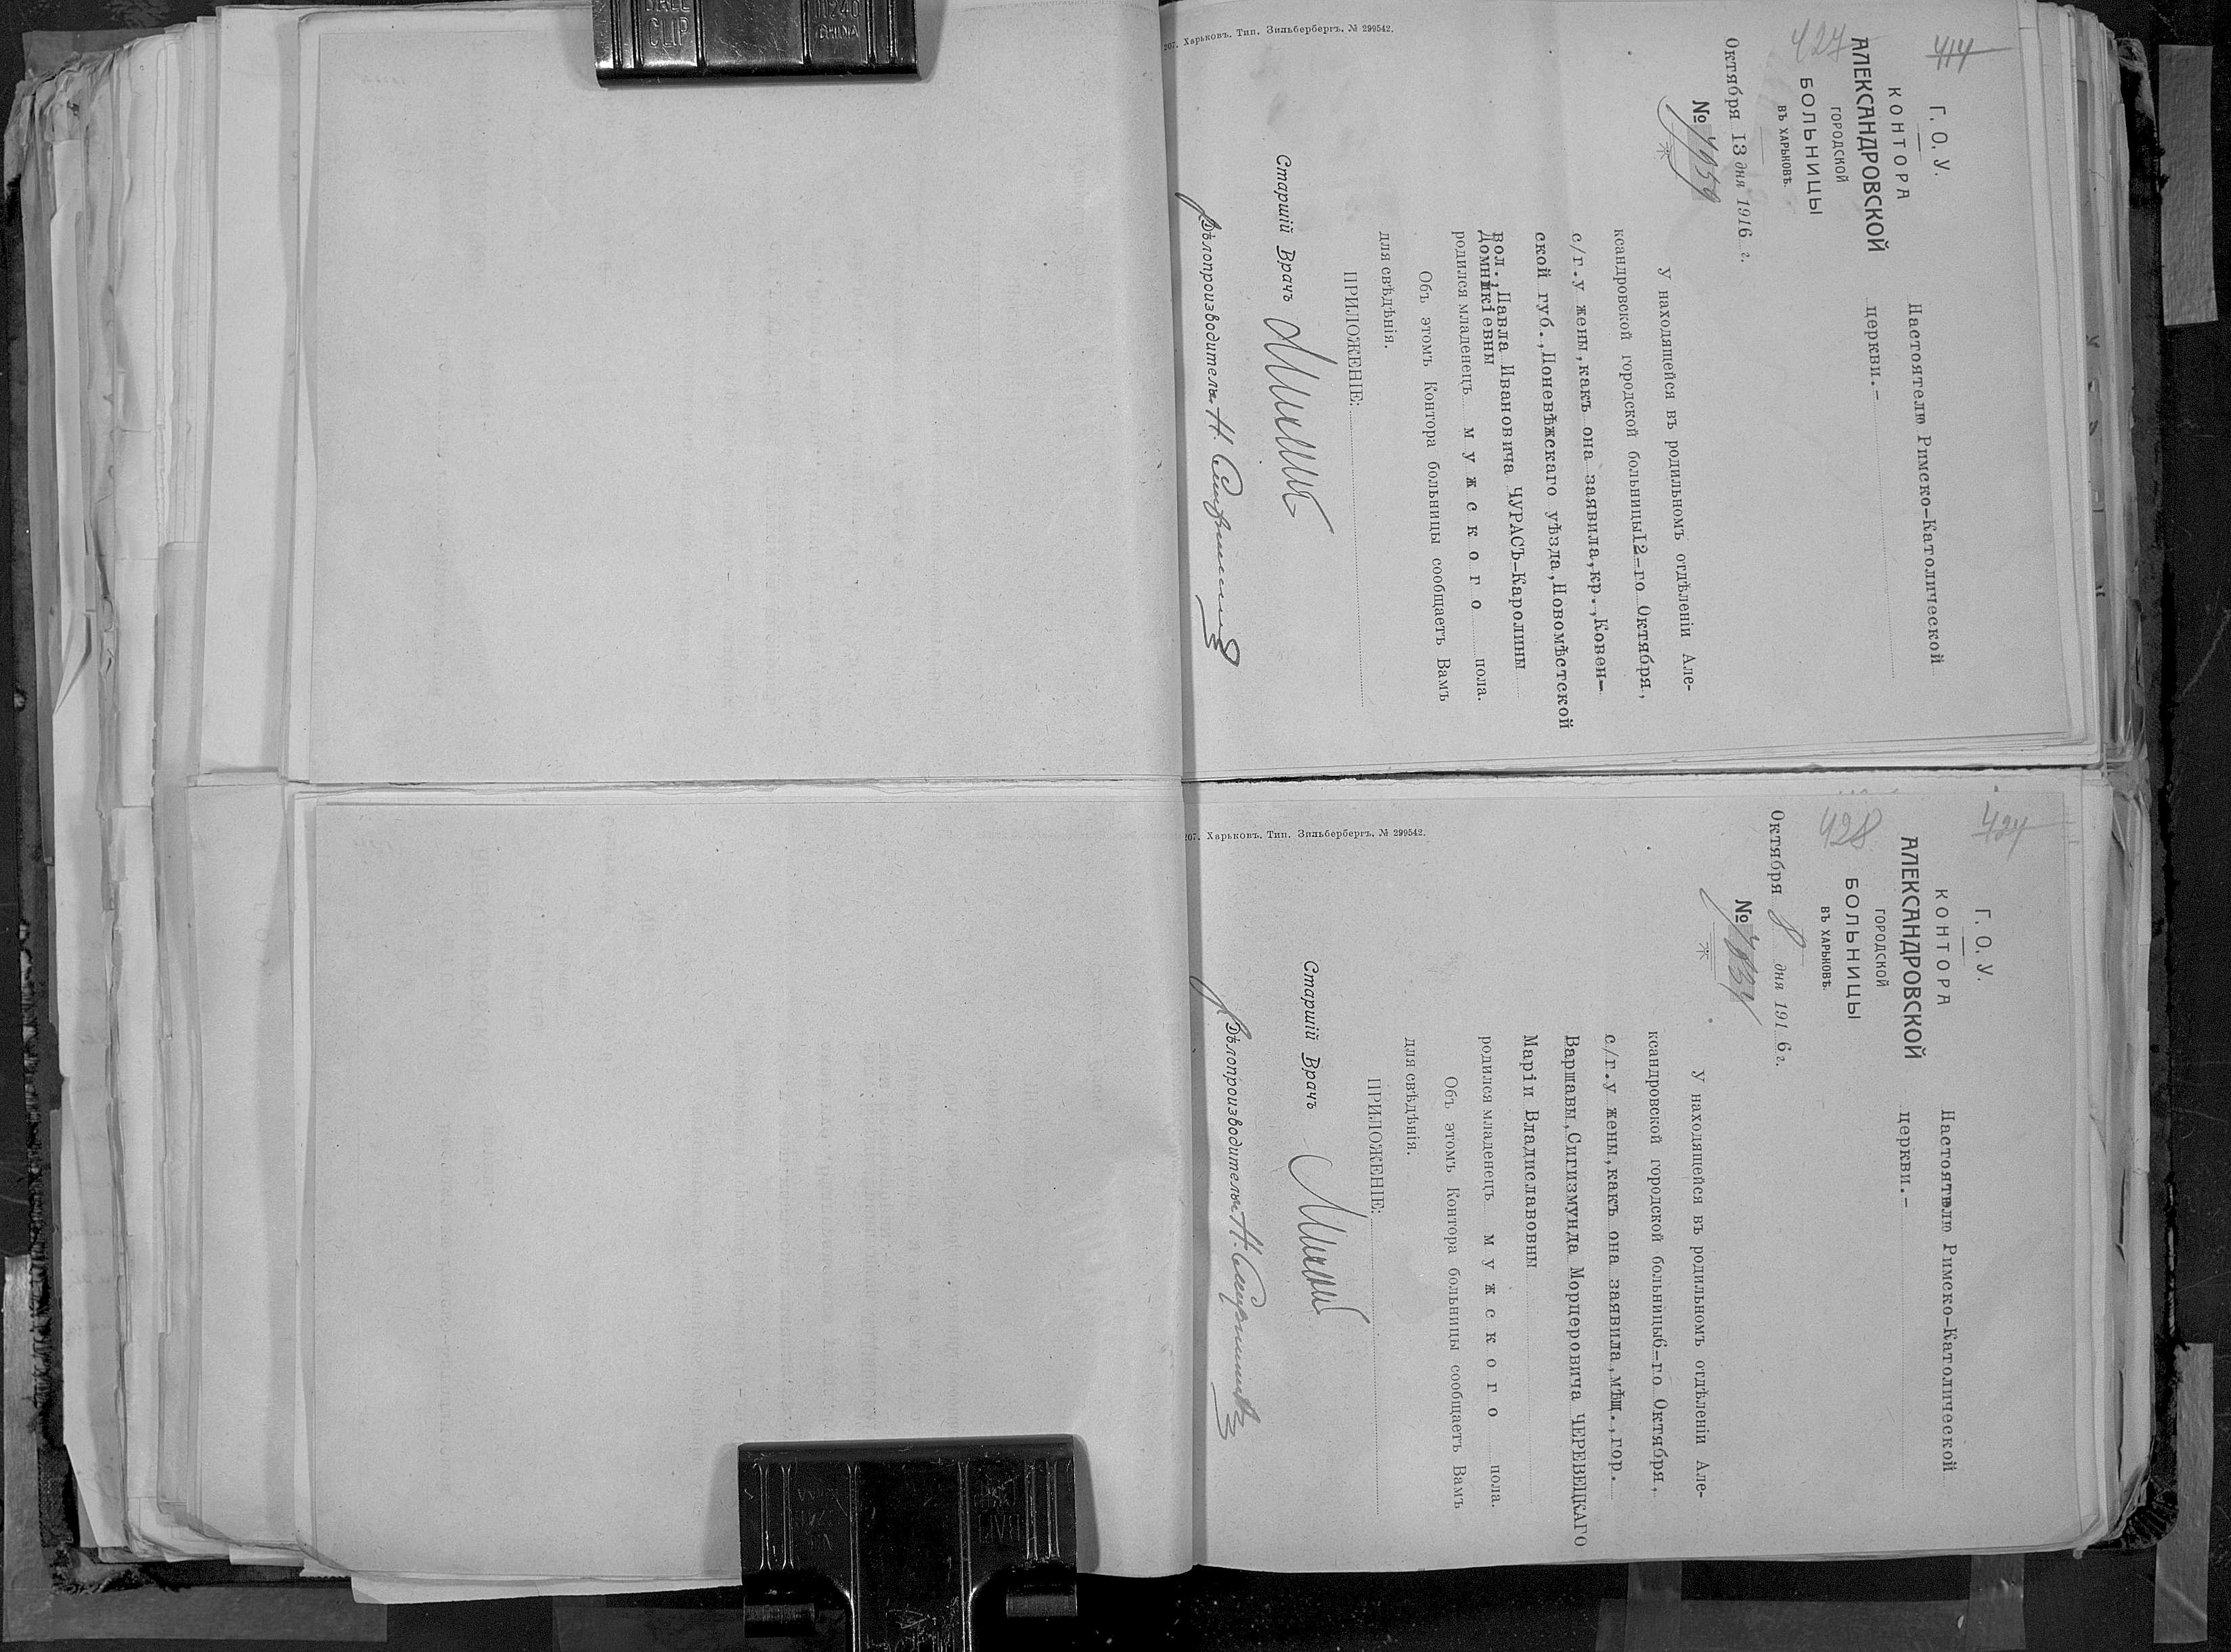 414
427
Г. О. У.
КОНТОРА
АЛЕКСАНДРОВСКОЙ
ГОРОДСКОЙ
БОЛЬНИЦЫ
ВЪ ХАРЬКОВѢ.
Октября 13 дня 1916 г.
№
Настоятелю Римско-Католической
церкви.-
У находящейся въ родильномъ отдѣленіи Але-
ксандровской городской больницы 12-го Октября,
с/г.у жены,какъ она заявила,кр.,Ковен-
ской губ.,Поневѣжскаго уѣзда,Новомѣстской
вол.,Павла Ивановича ЧУРАСЪ-Каролины
Домникіевны
родился младенецъ мужского пола.
Объ этомъ Контора больницы сообщаетъ Вамъ
для свѣдѣнія.
ПРИЛОЖЕНІЕ:
Старшій Врачъ
Дѣлопроизводитель
207. Харьковъ. Тип. Зильбербергъ. № 299542.
424
428
Г. О. У.
КОНТОРА
АЛЕКСАНДРОВСКОЙ
ГОРОДСКОЙ
БОЛЬНИЦЫ
ВЪ ХАРЬКОВѢ.
Октября 8 дня 1916 г.
№
Настоятелю Римско-Католической
церкви.-
У находящейся въ родильномъ отдѣленіи Але-
ксандровской городской больницы 6-го Октября,
с/г.у жены,какъ она заявила,мѣщ.,гор.
Варшавы,Сигизмунда Морцеровича ЧЕРЕВЕЦКАГО
Маріи Владиславовны
родился младенецъ мужского пола.
Объ этомъ Контора больницы сообщаетъ Вамъ
для свѣдѣнія.
ПРИЛОЖЕНІЕ:
Старшій Врачъ
Дѣлопроизводитель
207. Харьковъ. Тип. Зильбербергъ. № 299542.